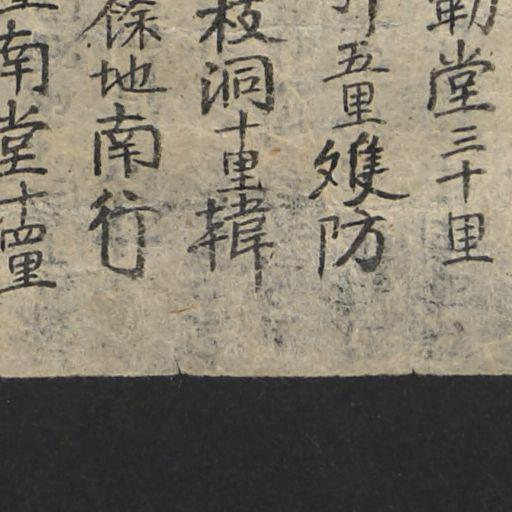 勒堂三十里
五里雙防
枝洞十里韓
餘地南行
南堂十四里